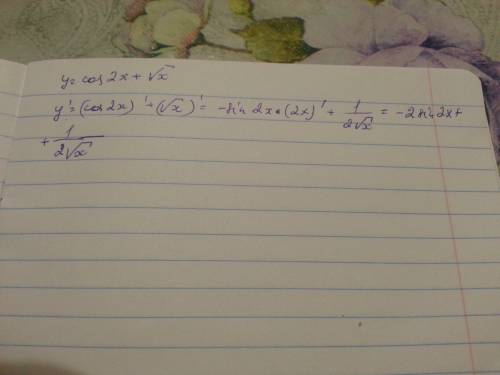 y = cos 2x + √x
y' = (cos 2x)' + (√x)' = -sin 2x * (2x)' + 1/(2√x) = -2 sin 2x +
+ 1/(2√x)